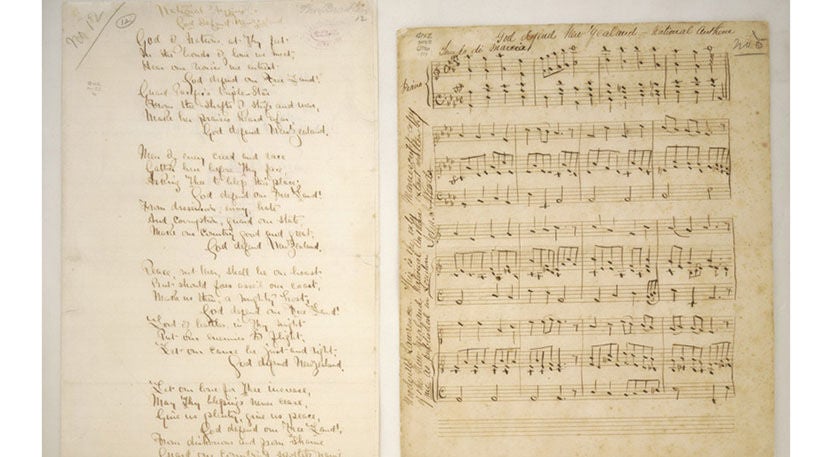 National Hymn
God Defend New Zealand
God of Nations at Thy feet
In the bonds of love we meet,
Hear our voices we entreat
God defend our Free Land!
Guard Pacific's triple Star
From the shafts of strife and war,
Make her praises heard afar,
God defend New Zealand.
Men of every creed and race
Gather here before Thy face,
Asking Thee to bless this place,
God defend our Free Land!
From dissension, envy, hate
And corruption, guard our State
Make our Country good and great,
God defend New Zealand.
Peace, not War, shall be our boast
But should foes assail our coast,
Make us then a mighty host,
God defend our Free Land!
Lord of battles in Thy might
Put our enemies to flight,
Let our cause be just and right,
God defend New Zealand.
Let our love for Thee increase,
May Thy blessings never cease,
Give us plenty, give us peace,
God defend our Free Land!
From dishonour and from shame
Guard our Country's spotless name
God defend New Zealand – National Anthem
No 5
Tempo di marcia
Piano